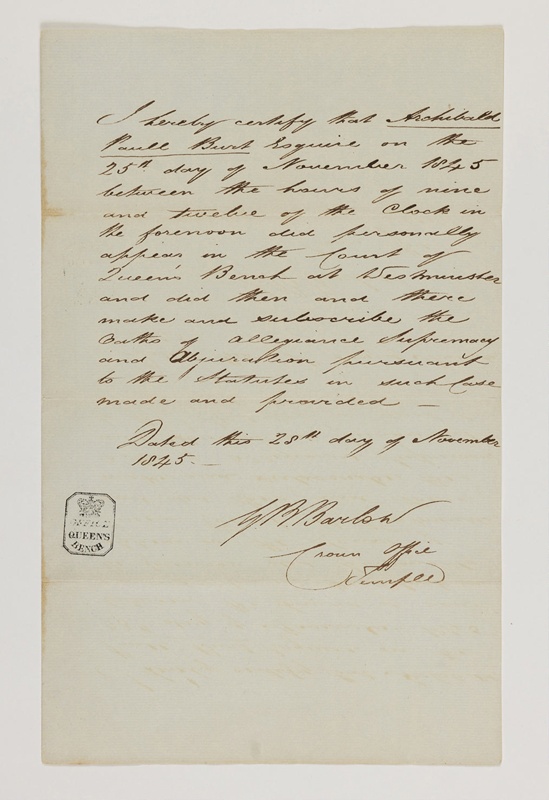 I hereby certify that Archibald
Paull Burt Esquire on the
25th day of November 1845
between the hours of nine
and twelve of the Clock in
the forenoon did personally
appear in the Court of
Queen's Bench at Westminster
and did then and there
make and subscribe the
Oaths of Allegiance Supremacy
and Abjuration pursuant
to the Statutes in such Case
made and provided —
Dated this 28th day of November
1845. —
Barlow
Crown Office
Temple
OFFICE
QUEEN'S
BENCH